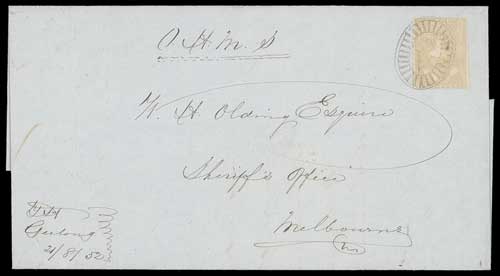 O. H. M. S
W. H. Olding Esquire
Sheriff's Office
Melbourne
Geelong
21/8/52